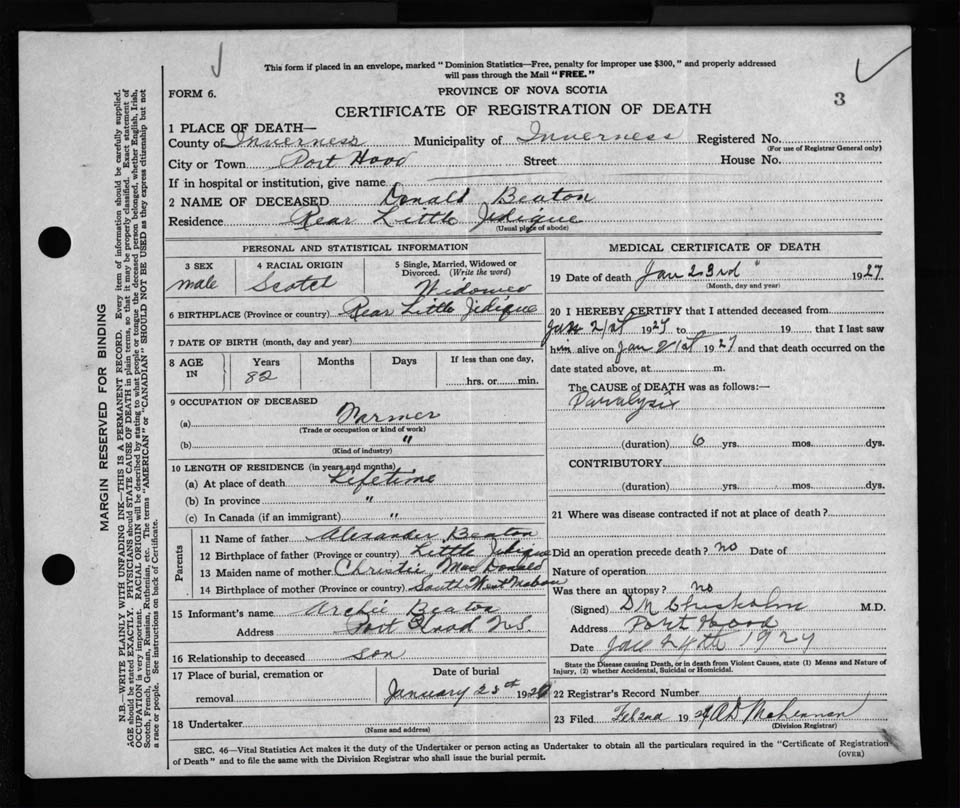 This form if placed in an envelope, marked "Dominion Statistics—Free, penalty for improper use $300," and properly addressed
will pass through the Mail "FREE."
FORM 6.
PROVINCE OF NOVA SCOTIA
3
CERTIFICATE OF REGISTRATION OF DEATH
1 PLACE OF DEATH—
County of Inverness Municipality of Inverness Registered No.
(For use of Registrar General only)
City or Town Port Hood Street House No.
If in hospital or institution, give name
2 NAME OF DECEASED Donald Beaton
Residence Rear Little Judique
(Usual place of abode)
PERSONAL AND STATISTICAL INFORMATION
3 SEX 4 RACIAL ORIGIN 5 Single, Married, Widowed or
Divorced. (Write the word)
male Scotch Widowed
6 BIRTHPLACE (Province or country) Rear Little Judique
7 DATE OF BIRTH (month, day and year)
8 AGE IN Years Months Days If less than one day,
82 hrs. or min.
9 OCCUPATION OF DECEASED
(a) Farmer
(Trade or occupation or kind of work)
(b) "
(Kind of industry)
10 LENGTH OF RESIDENCE (in years and months)
(a) At place of death Lifetime
(b) In province "
(c) In Canada (if an immigrant) "
Parents
11 Name of father Alexander Beaton
12 Birthplace of father (Province or country) Little Judique
13 Maiden name of mother Christie MacDonald
14 Birthplace of mother (Province or country) South West Mabou
15 Informant's name Archie Beaton
Address Port Hood N.S.
16 Relationship to deceased son
17 Place of burial, cremation or Date of burial
removal January 25th 192
18 Undertaker
(Name and address)
MEDICAL CERTIFICATE OF DEATH
19 Date of death Jan 23rd " 1927
(Month, day and year)
20 I HEREBY CERTIFY that I attended deceased from
Jan 21st 1927 to 19 that I last saw
him alive on Jan 21st 1927 and that death occurred on the
date stated above, at m.
The CAUSE OF DEATH was as follows:—
Paralysis
(duration) 6 yrs. mos. dys.
CONTRIBUTORY
(duration) yrs. mos. dys.
21 Where was disease contracted if not at place of death?
Did an operation precede death? no Date of
Nature of operation
Was there an autopsy? no
(Signed) D M Chisholm M.D.
Address Port Hood
Date Jan 24th 1927
State the Disease causing Death, or in death from Violent Causes, state (1) Means and Nature of
Injury, (2) whether Accidental, Suicidal or Homicidal.
22 Registrar's Record Number
23 Filed Feb 2nd 192
(Division Registrar)
SEC. 46—Vital Statistics Act makes it the duty of the Undertaker or person acting as Undertaker to obtain all the particulars required in the "Certificate of Registration
of Death" and to file the same with the Division Registrar who shall issue the burial permit.
(OVER)
MARGIN RESERVED FOR BINDING
N.B.—WRITE PLAINLY WITH UNFADING INK—THIS IS A PERMANENT RECORD. Every item of information should be carefully supplied.
AGE should be stated EXACTLY. PHYSICIANS should STATE CAUSE OF DEATH in plain terms, so that it may be properly classified. Exact statement of
OCCUPATION is very important. RACIAL ORIGIN will be described by stating to what people or tongue the deceased person belonged, whether English, Irish,
Scotch, French, German, Russian, Ruthenian, etc. The terms "AMERICAN" or "CANADIAN" SHOULD NOT BE USED as they express citizenship but not
a race or people. See instructions on back of Certificate.